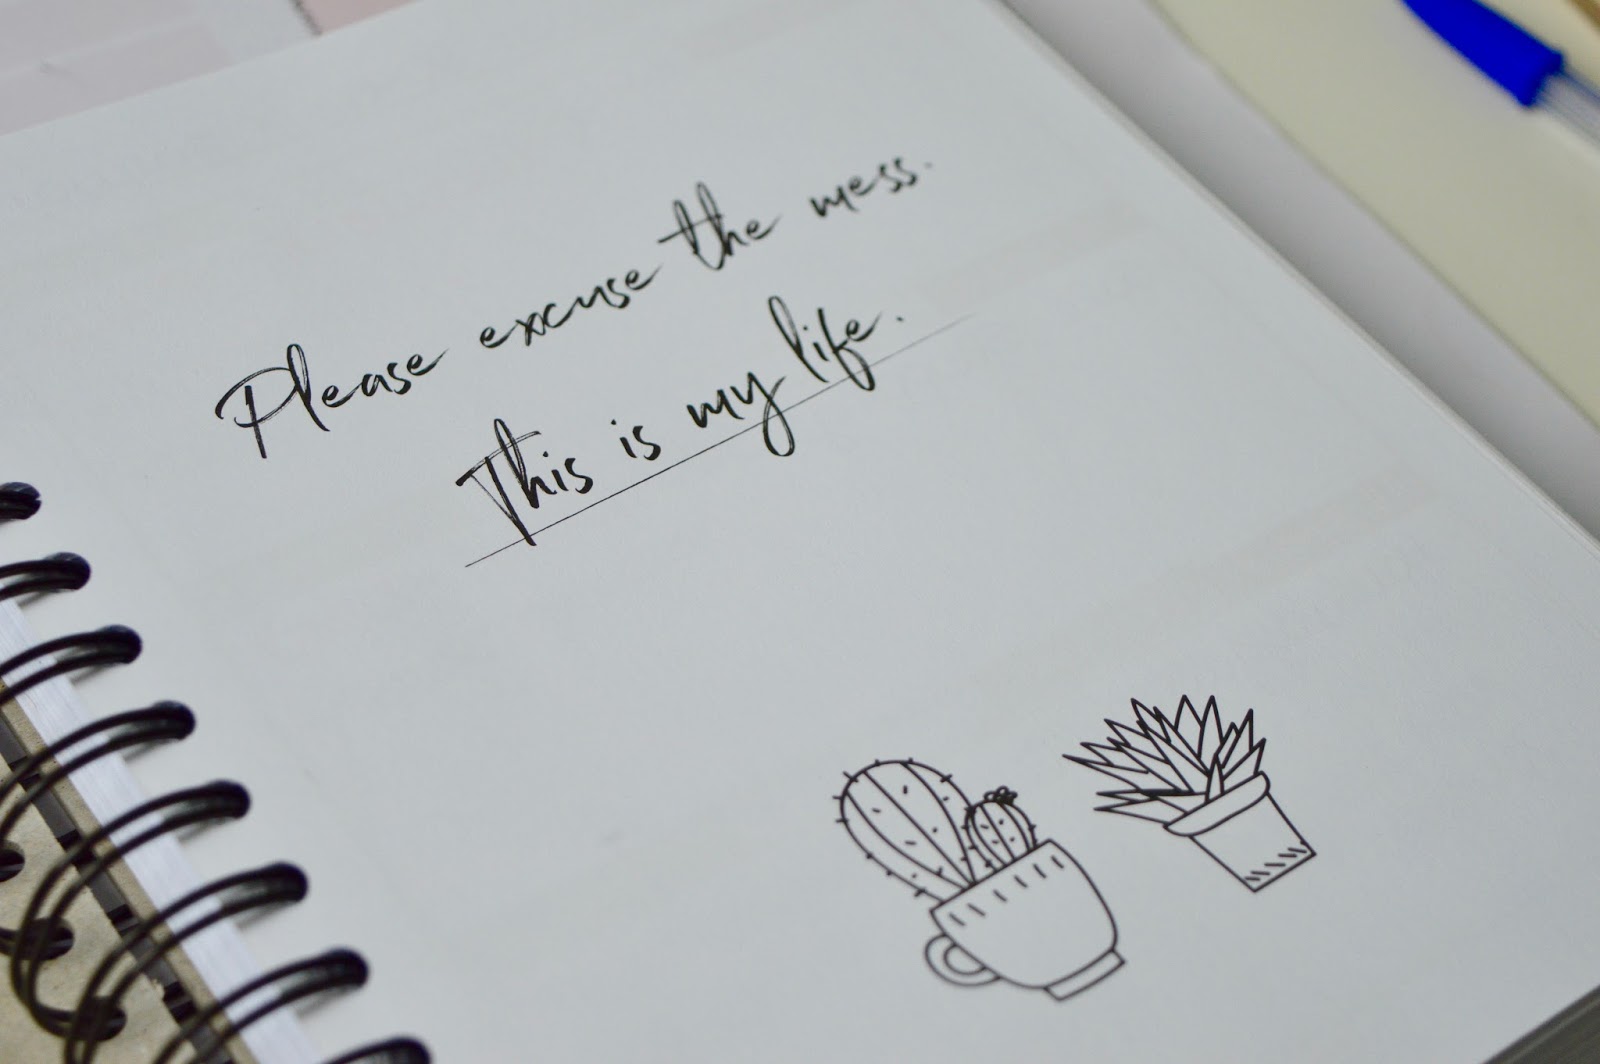 Please excuse the mess.
This is my life.